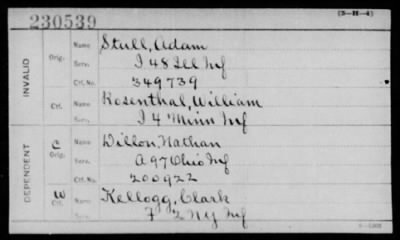 230539
(3-H-4)
INVALID
Orig.
Name Stull, Adam
Serv. I 48 Ill Inf
Ctf. No. 349739
Ctf.
Name Rosenthal, William
Serv. I 4 Minn Inf
DEPENDENT
C
Orig.
Name Dillon, Nathan
Serv. A 97 Ohio Inf
Ctf. No. 200922
W
Ctf.
Name Kellogg, Clark
F 2 NY Inf